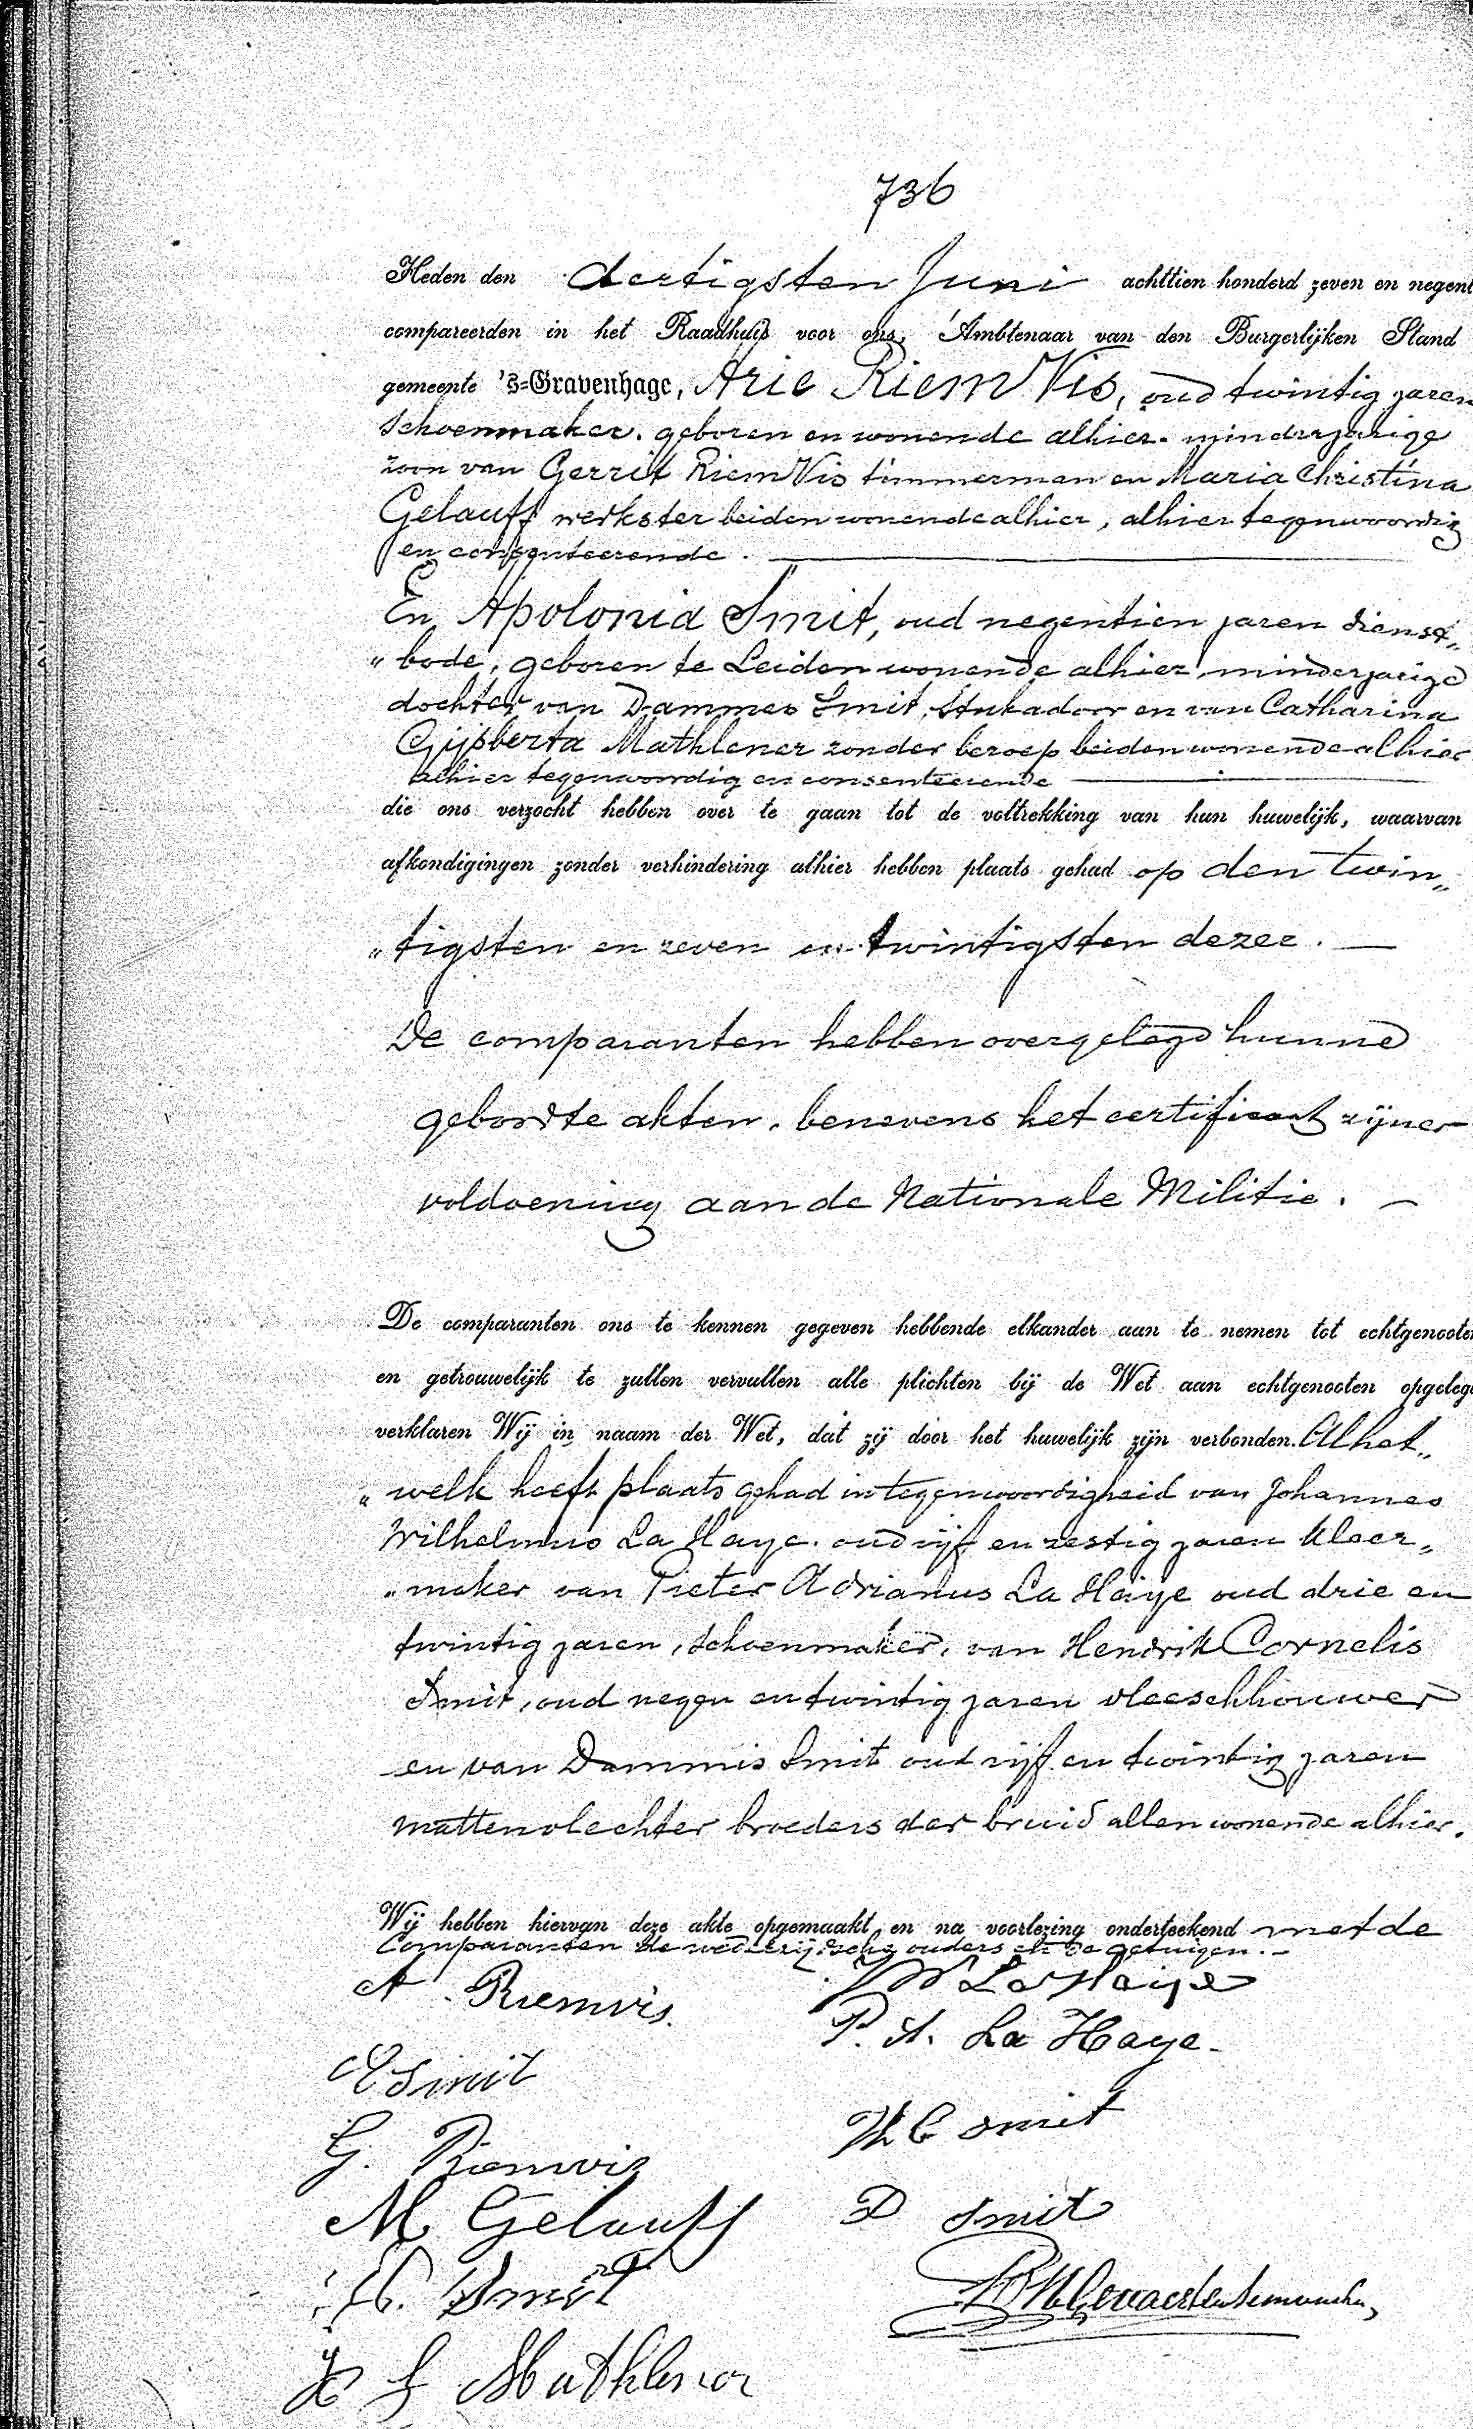 736
Heden den dertigsten Juni achttien honderd zeven en negent
compareerden in het Raadhuis voor ons, Ambtenaar van den Burgerlijken Stand
gemeente 's=Gravenhage, Arie Riem Vis, oud twintig jaren
schoenmaker, geboren en wonende alhier, minderjarige
zoon van Gerrit Riem Vis timmerman en Maria Christina
Gelauff werkster beiden wonende alhier, alhier tegenwoordig
en consenteerende.
En Apolonia Smit, oud negentien jaren dienst„
„bode, geboren te Leiden wonende alhier, minderjarige
dochter van Dammes Smit, Stukadoor en van Catharina
Gijsberta Mathlener zonder beroep beiden wonende alhier
alhier tegenwoordig en consenteerende
die ons verzocht hebben over te gaan tot de voltrekking van hun huwelijk, waarvan
afkondigingen zonder verhindering alhier hebben plaats gehad op den twin„
„tigsten en zeven en twintigsten dezer. —
De comparanten hebben overgelegd hunne
geboorte akten, benevens het certificaat zijner
voldoening aan de Nationale Militie. —
De comparanten ons te kennen gegeven hebbende elkander aan te nemen tot echtgenooten
en getrouwelijk te zullen vervullen alle plichten bij de Wet aan echtgenooten opgeleg
verklaren Wij in naam der Wet, dat zij door het huwelijk zijn verbonden. Al het„
„welk heeft plaats gehad in tegenwoordigheid van Johannes
Wilhelmus La Haye, oud vijf en zestig jaren kleer„
„maker van Pieter Adrianus La Haye oud drie en
twintig jaren, schoenmaker, van Hendrik Cornelis
Smit, oud negen en twintig jaren vleeschhouwer
en van Dammis Smit oud vijf en twintig jaren
mattenvlechter broeders der bruid allen wonende alhier.
Wij hebben hiervan deze akte opgemaakt en na voorlezing onderteekend met de
Comparanten de wederzijdsche ouders en de getuigen. —
A Riemvis.
JW La Haije
P. A. La Haye.
A Smit
H C Smit
G. Riemvis
M Gelauff
D Smit
D. Smit
G Mathlener